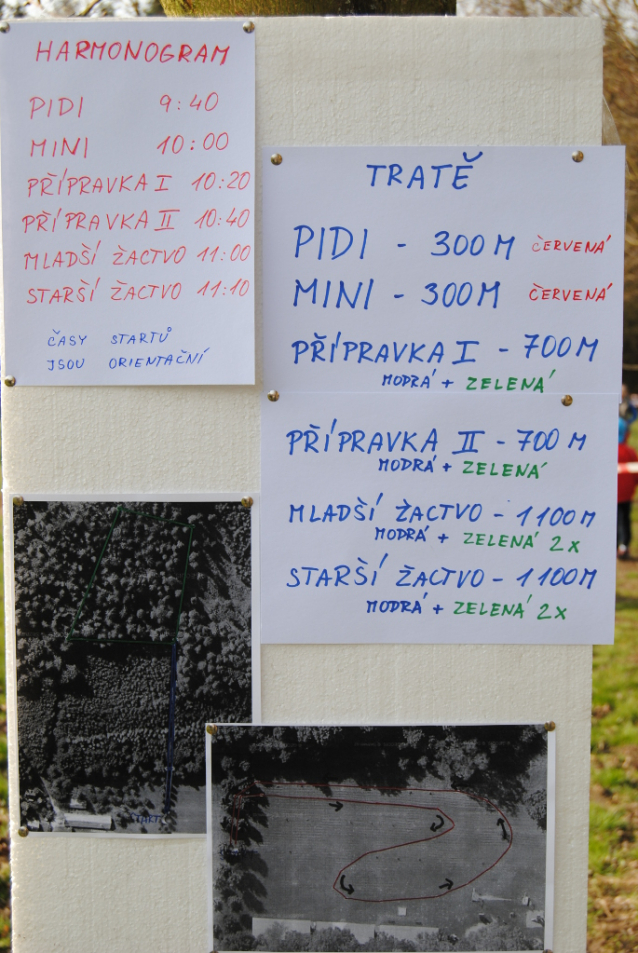 HARMONOGRAM
PIDI 9:40
MINI 10:00
PŘÍPRAVKA I 10:20
PŘÍPRAVKA II 10:40
MLADŠÍ ŽACTVO 11:00
STARŠÍ ŽACTVO 11:10
ČASY STARTŮ
JSOU ORIENTAČNÍ
TRATĚ
PIDI - 300 M ČERVENÁ
MINI - 300 M ČERVENÁ
PŘÍPRAVKA I - 700 M
MODRÁ + ZELENÁ
PŘÍPRAVKA II - 700 M
MODRÁ + ZELENÁ
MLADŠÍ ŽACTVO - 1100 M
MODRÁ + ZELENÁ 2X
STARŠÍ ŽACTVO - 1100 M
MODRÁ + ZELENÁ 2X
START